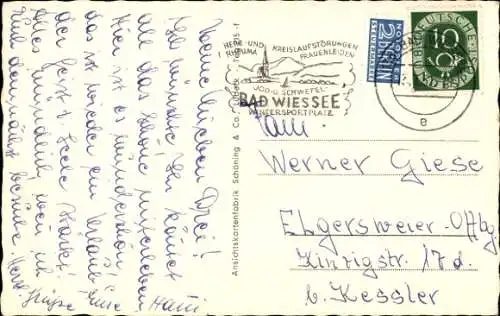 Meine lieben Drei!
Ich wünschte Ihr könnt
all das Schöne miterleben!
Hier ist es wunderschön,
das ist wieder ein Urlaub
der Geist u. Seele stärkt!
Alles mündlich, wenn ich
Grüße Eure Hani
HERZ- UND KREISLAUFSTÖRUNGEN
RHEUMA FRAUENLEIDEN
JOD- U. SCHWEFEL-
BAD WIESSEE
WINTERSPORTPLATZ
NOTOPFER
2 BERLIN
STEUERMARKE
DEUTSCHE
10
BUNDESPOST
e
Ansichtskartenfabrik Schöning & Co., Lübeck
Fam.
Werner Giese
Elgersweier-Offbg
Kinzigstr. 17d
b. Kessler